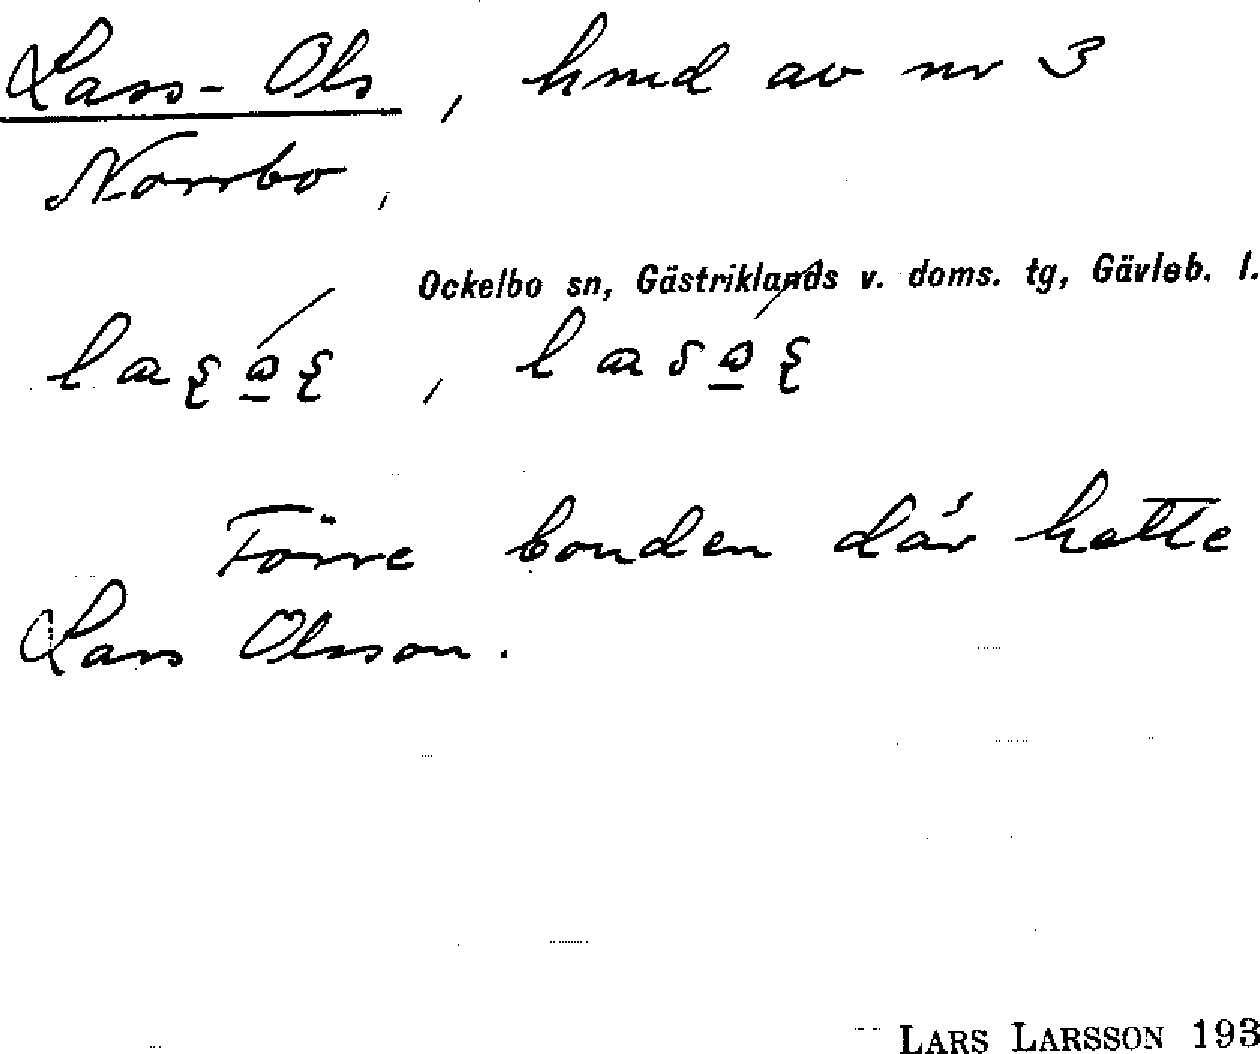 Lass-Ols, hmd av nr 3
Norrbo,
Ockelbo sn, Gästriklands v. doms. tg, Gävleb. l.
Förre bonden där hette
Lars Olsson.
LARS LARSSON 193